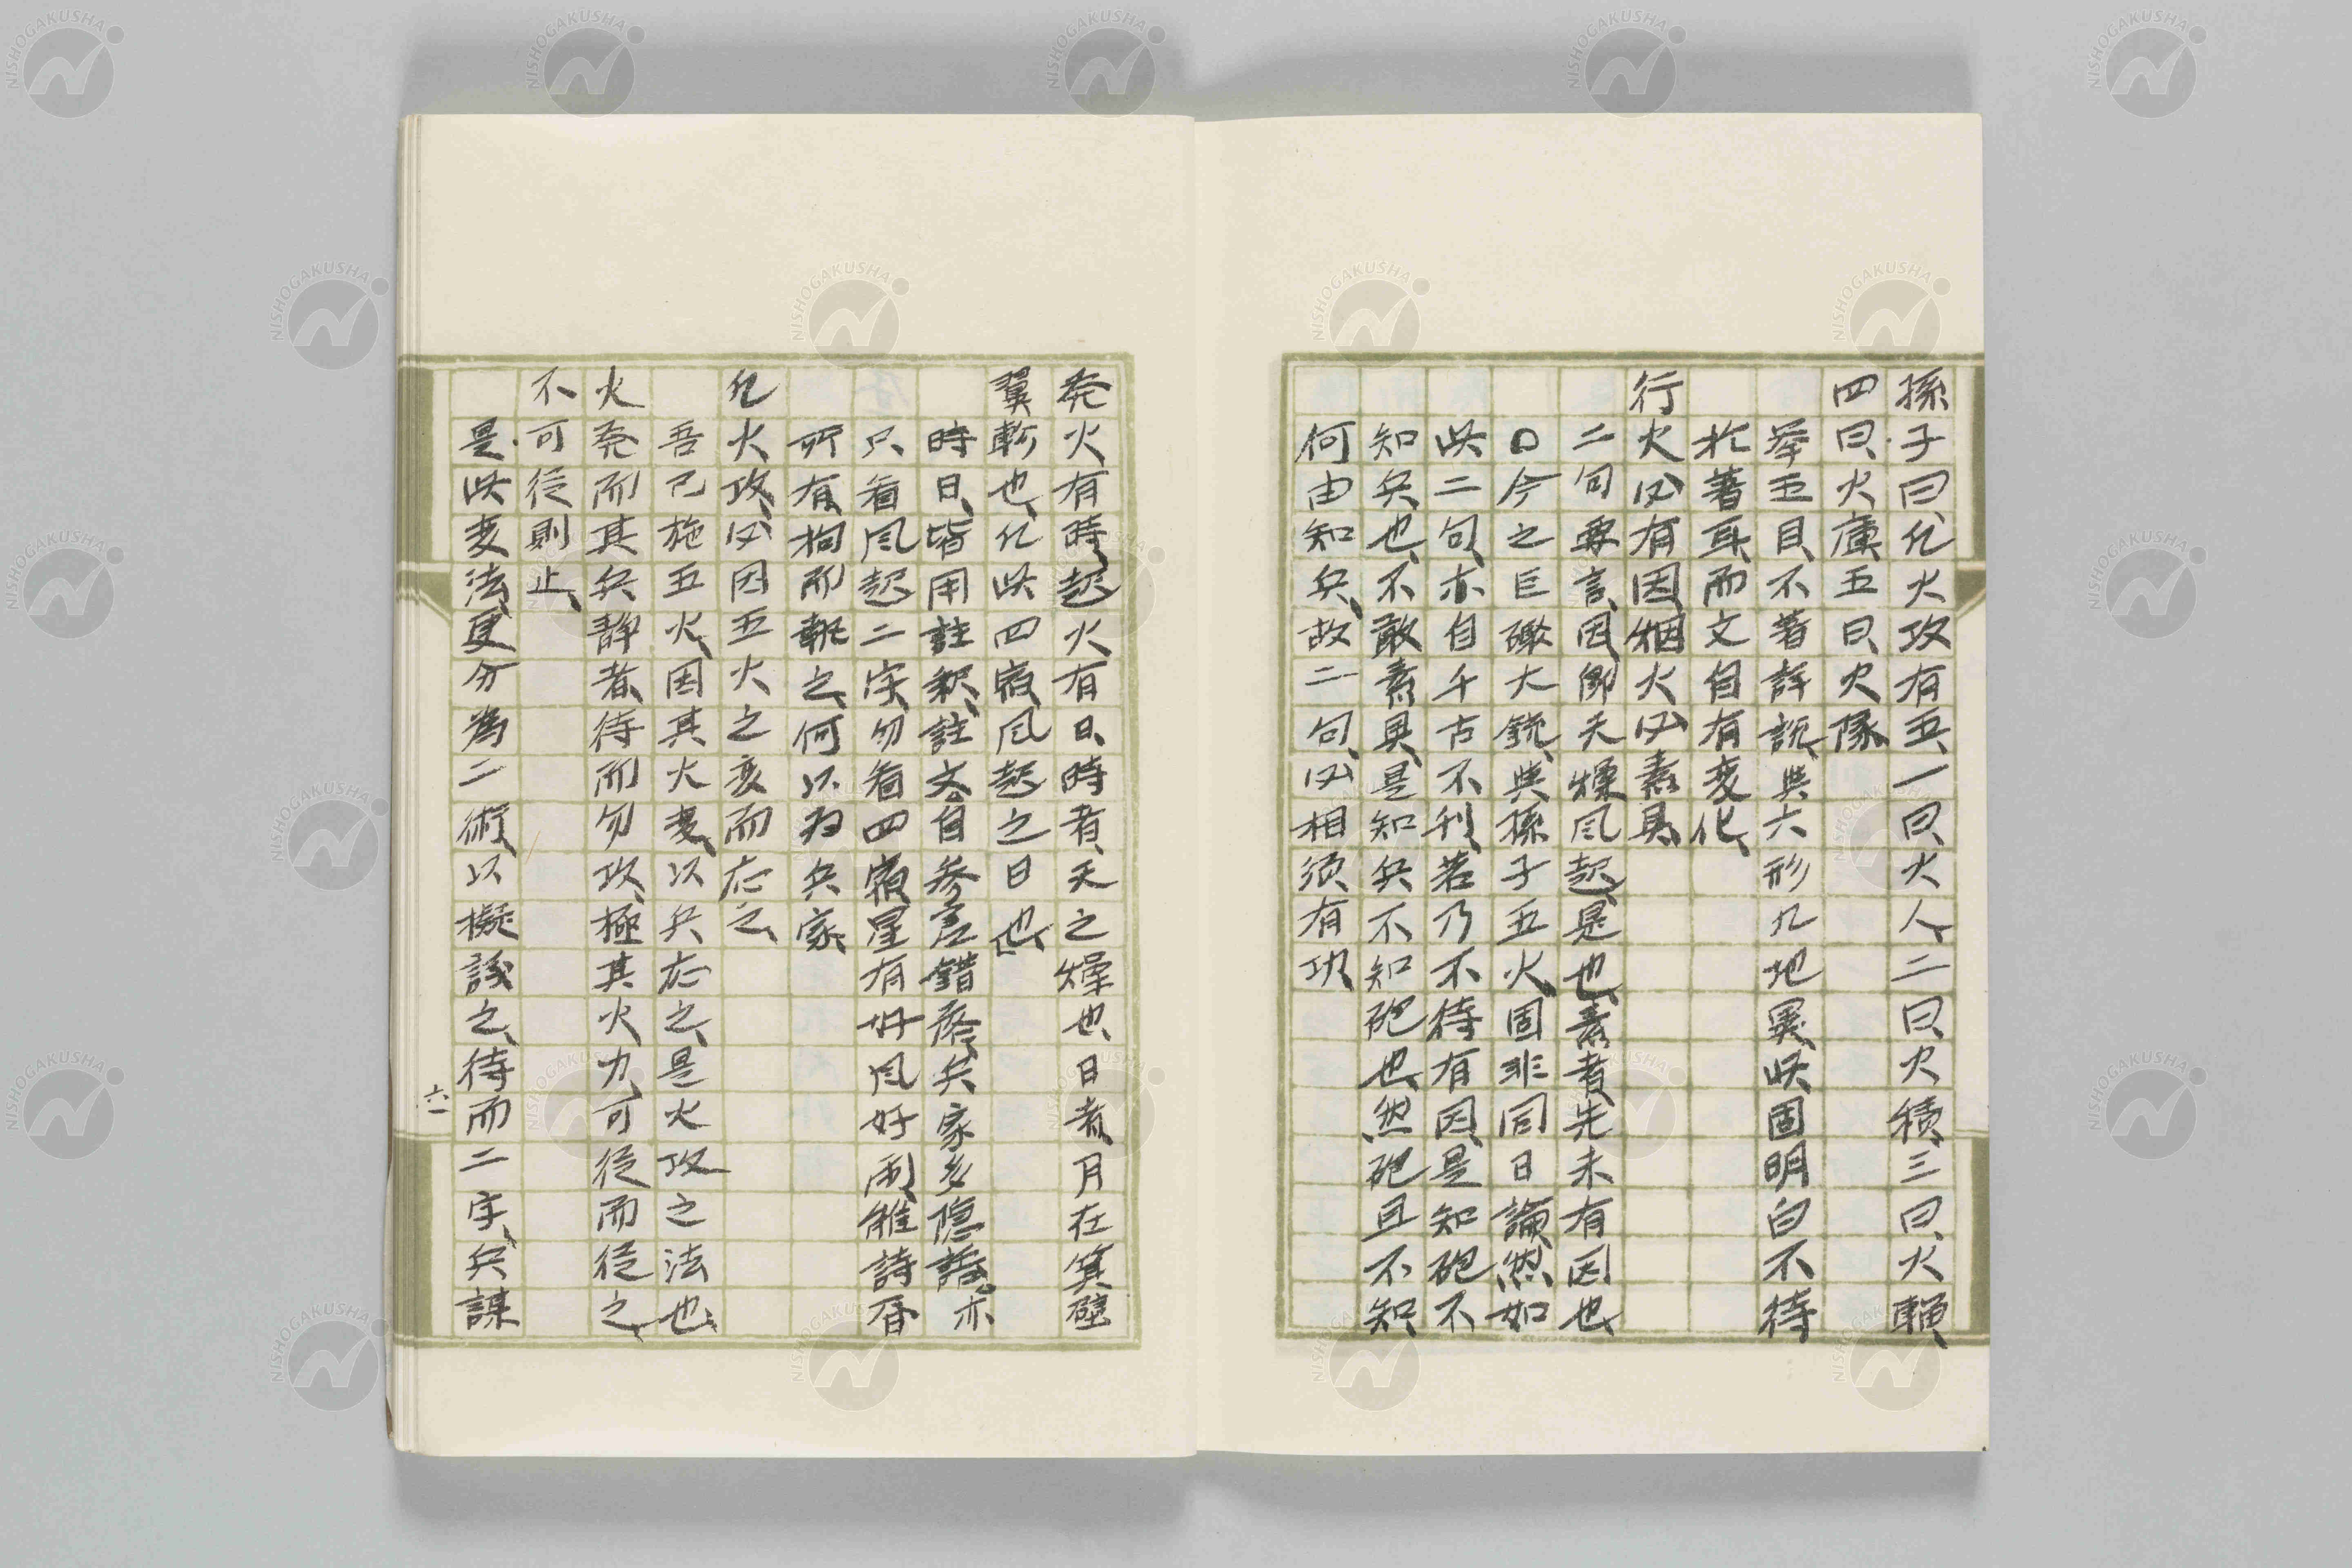 孫子曰、凡火攻有五、一曰、火人、二曰、火積、三曰、火輜、
四曰、火庫、五曰、火隊、
挙五目、不著詳説、與六形九地異、此固明白不待
北著耳、而文自有変化、
行火必有因、烟火必素具、
二句要言、因、即天燥風起、是也、素者、先未有因也、
口今之巨礮大銃、與孫子五火、固非同日論、然如
此二句、亦自千古不刊、若乃不待有因、是知砲不
知兵也、不敢素具、是知兵不知砲也、然砲且不知
何由知兵、故二句、必相須有功、
発火有時、起火有日、時者、天之燥也、日者、月在箕壁
翼軫也、凡此四宿、風起之日也、
時日、皆用註釈、註文、自参差錯落、兵家多隠語。亦
只看風起二字、勿看四宿星有好風好雨、雖詩昏
所有、拘而執之、何以为兵家、
凡火攻、必因五火之変而応之、
吾已施五火、因其火変、以兵応之、是火攻之法也、
火発而其兵静者、待而勿攻、極其火力、可従而従之、
不可従則止、
是此変法、更分為二術、以擬議之、待而二字、兵謀
六一